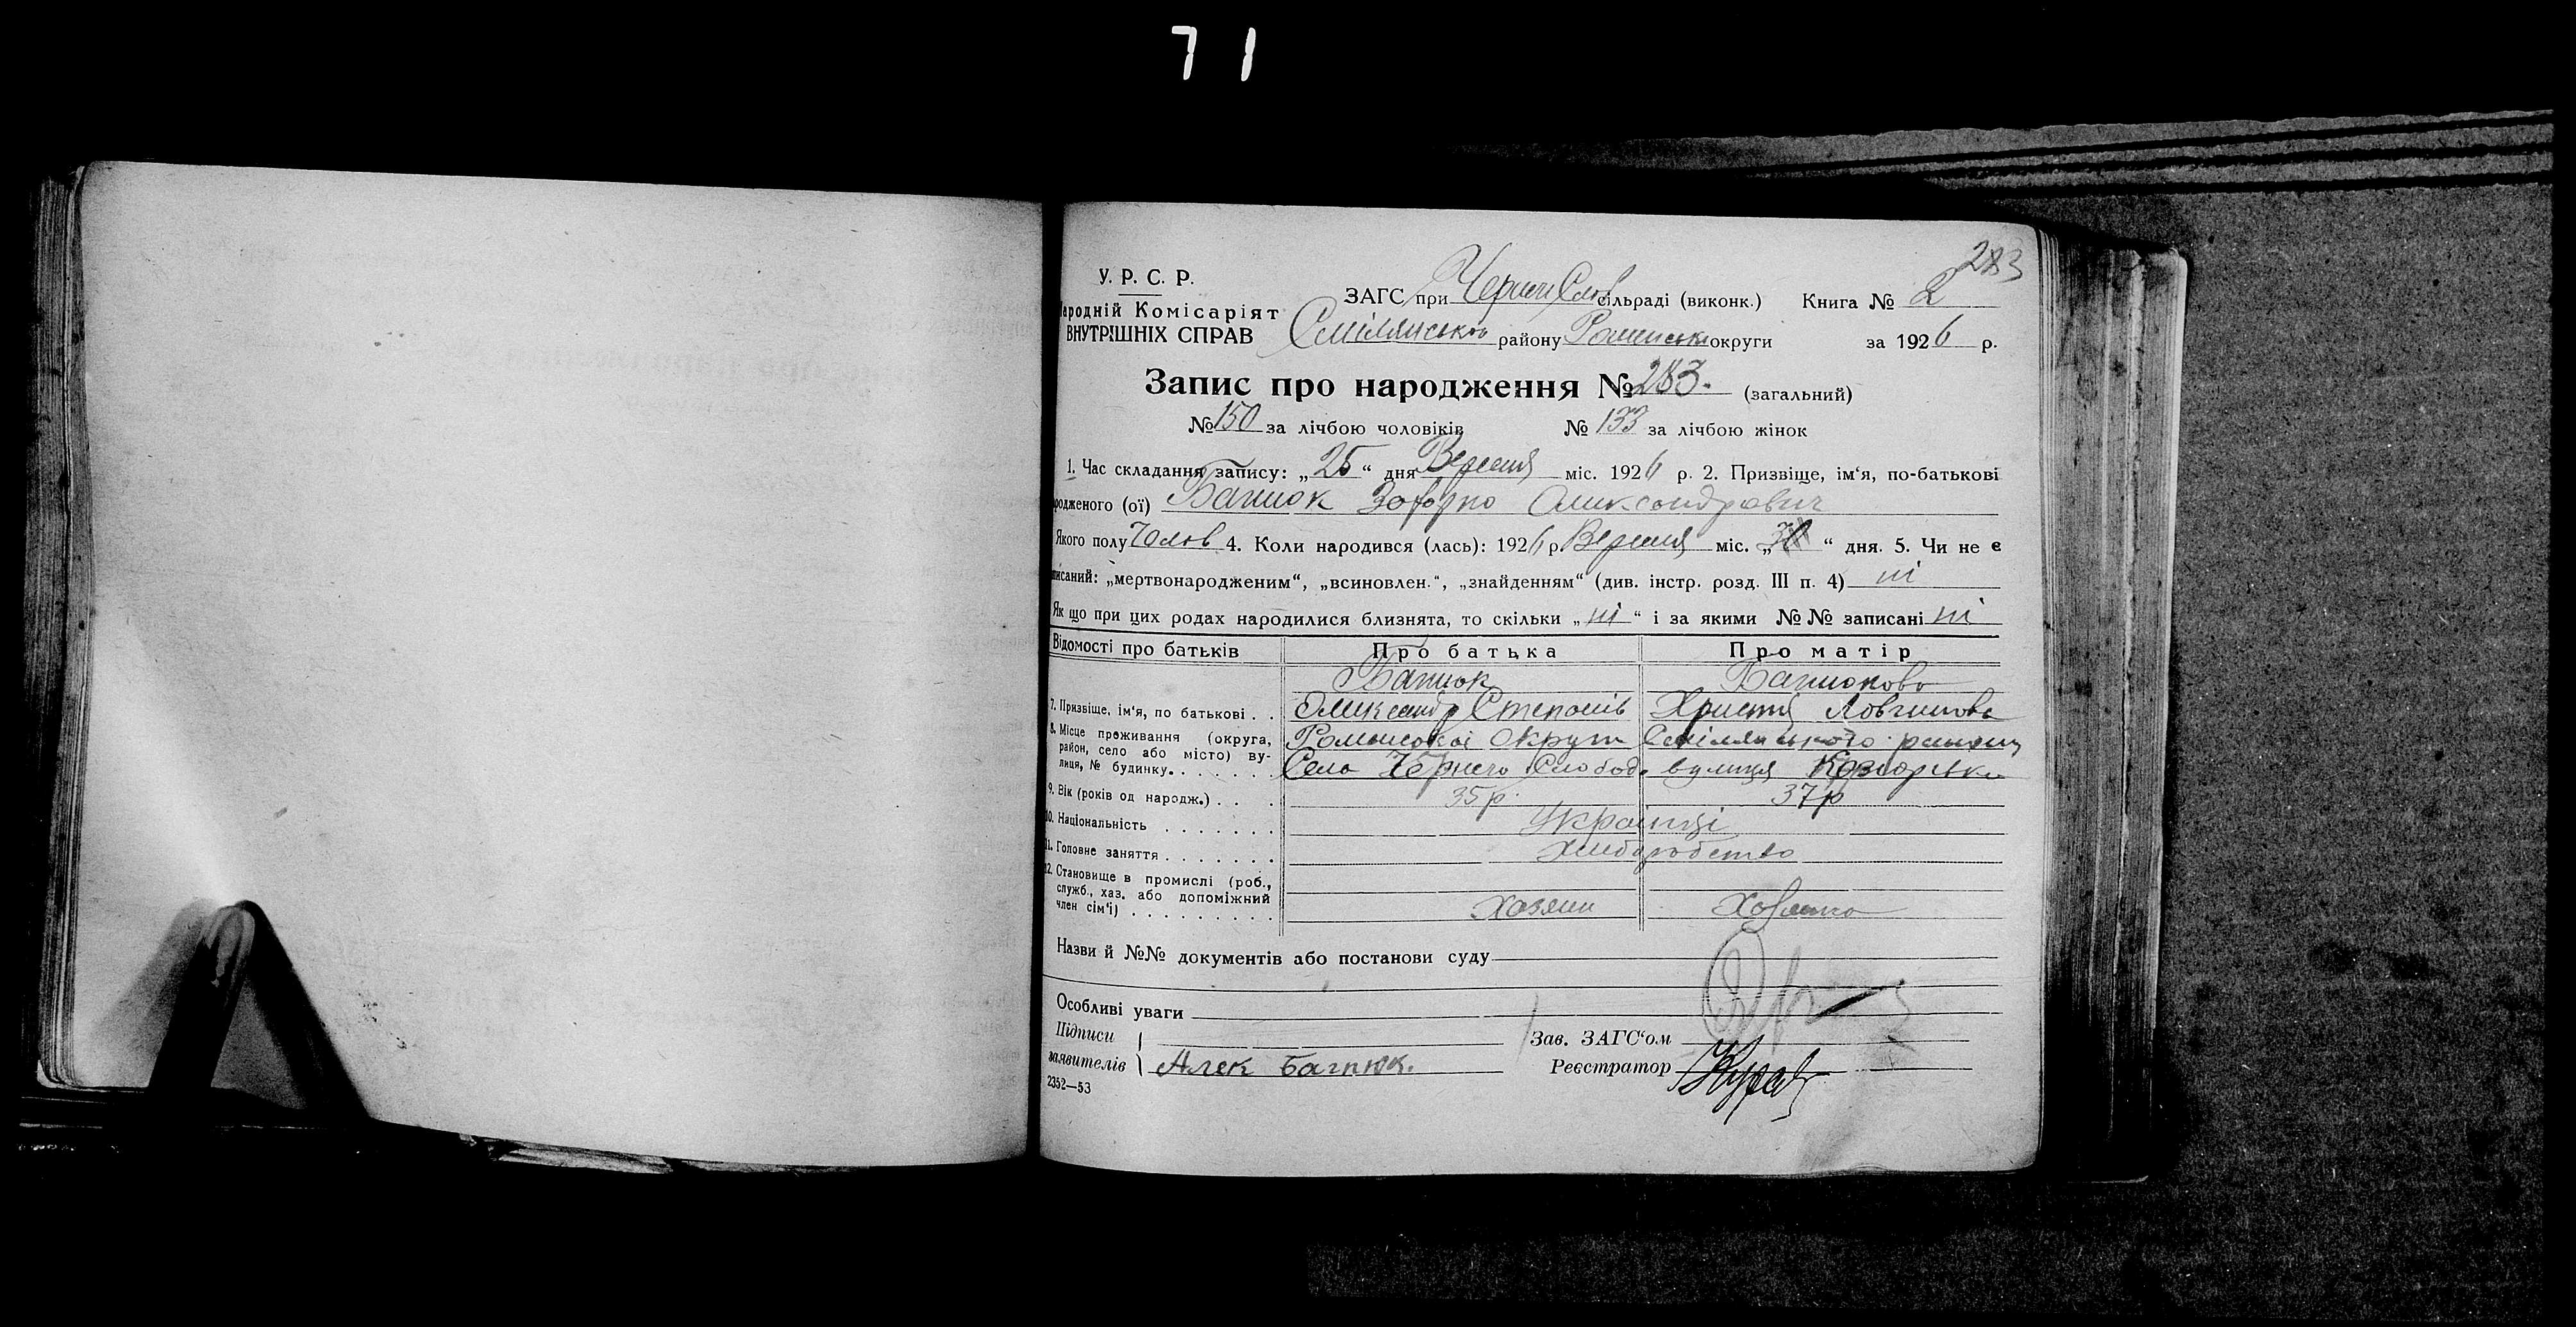 71
283
У. Р. С. Р.
ЗАГС при Чернечо Слоб сільраді (виконк.) Книга № 2
Народній Комісаріят
ВНУТРІШНІХ СПРАВ Смілянсько району Роменсько округи за 1926 р.
Запис про народження № 283. (загальний)
№ 150 за лічбою чоловіків № 133 за лічбою жінок
1. Час складання запису: „25“ дня Вересня міс. 1926 р. 2. Призвіще, ім‘я, по-батькові
родженого (ої) Олександрович
Якого полу Чолов 4. Коли народився (лась): 1926 р Вересня міс. „ “ дня. 5. Чи не є
писаний: „мертвонародженим“, „всиновлен.“, „знайденням“ (див. інстр. розд. III п. 4) ні
Як що при цих родах народилися близнята, то скільки „ні“ і за якими №№ записані ні
Відомості про батьків Про батька Про матір
7. Призвіще, ім‘я, по батькові . . Олександр Степанів Христя
8. Місце проживання (округа, район, село або місто) вулиця, № будинку. Роменської Округи Смілянського району
Село Чернеча Слобод. вулиця
9. Вік (років од народж.) . . . 35 р. 37 р
10. Національність . . . . . . . Українці
11. Головне заняття . . . . . . . Хлиборобство
12. Становище в промислі (роб., служб., хаз. або допоміжний член сім‘ї) . . . . . . . . . Хазяин Хазяйка
Назви й №№ документів або постанови суду
Особливі уваги
Підписи
заявителів Алек Багнюк.
Зав. ЗАГС‘ом
Реєстратор
2352—53